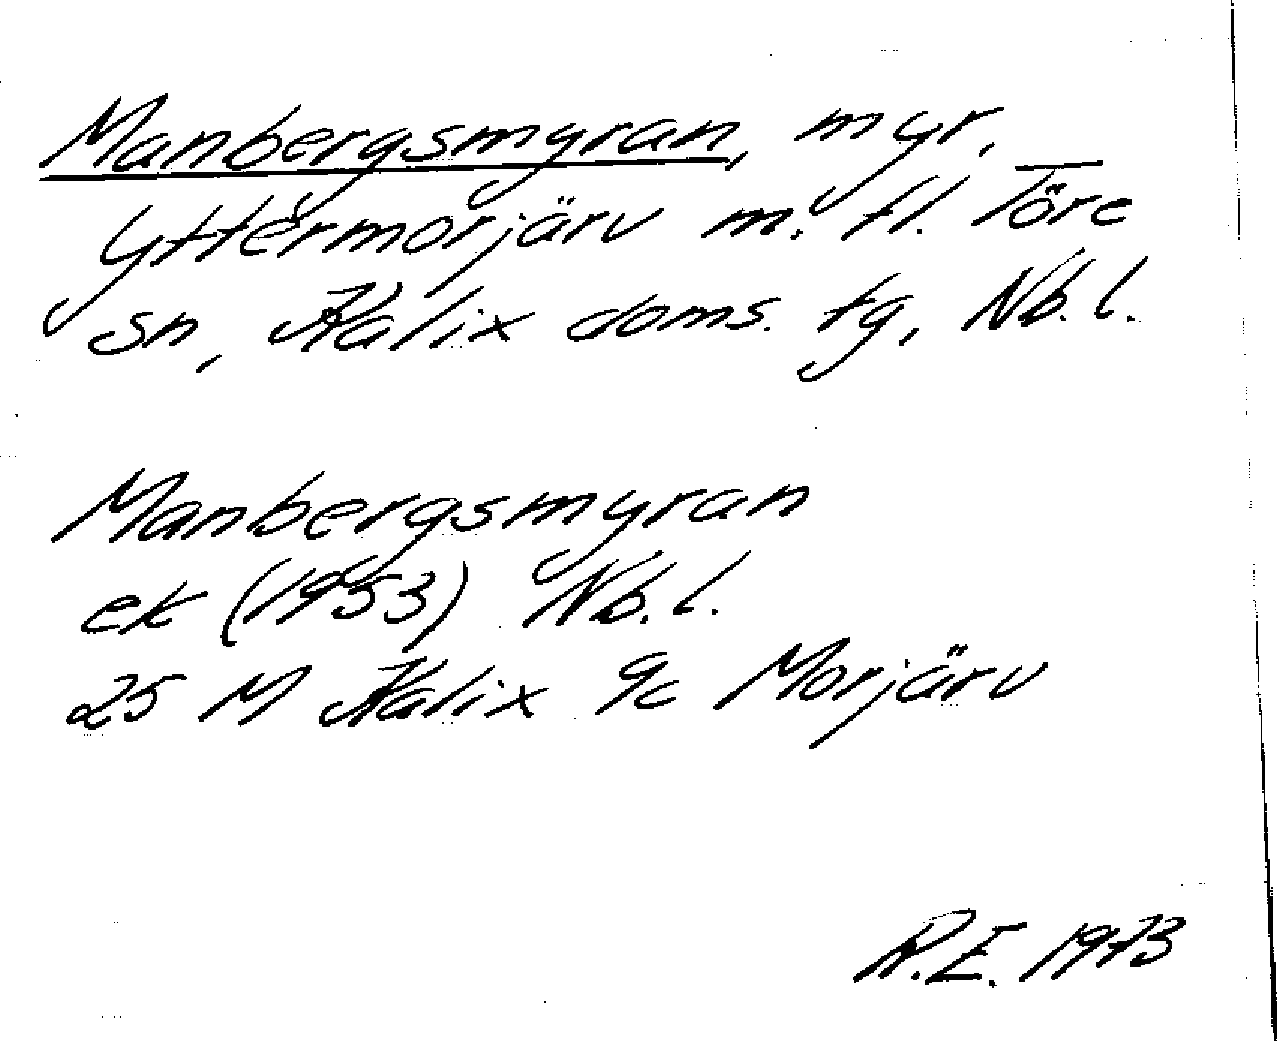 Manbergsmyran, myr,
Yttermorjärv m. fl. Töre
sn, Kalix doms. tg, Nb. l.
Manbergsmyran
ek (1953) Nb. l.
25 M Kalix 9c Morjärv
R.E. 1973